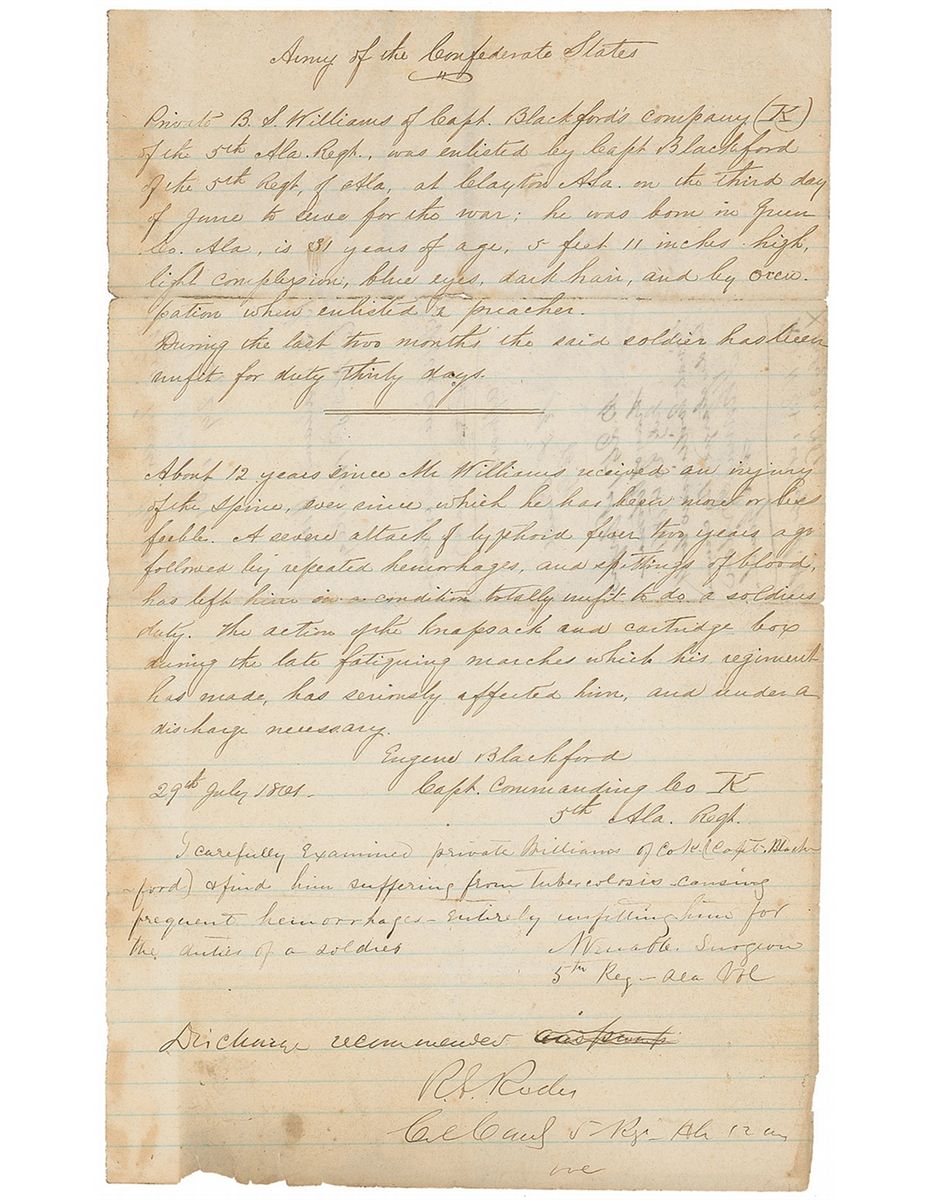 Army of the Confederate States
Private B. S. Williams of Capt. Blackford's company (K)
of the 5th Ala. Regt., was enlisted by Capt Blackford
of the 5th Regt, of Ala, at Clayton Ala. on the third day
of June to serve for the war; he was born in Green
Co. Ala, is 31 years of age, 5 feet 11 inches high,
light complexion, blue eyes, dark hair, and by occu-
pation when enlisted a preacher.
During the last two months the said soldier has been
unfit for duty thirty days.
About 12 years since Mr Williams received an injury
of the spine, ever since which he has been more or less
feeble. A severe attack of typhoid fever two years ago
followed by repeated hemorhages, and spittings of blood,
has left him in a condition totally unfit to do a soldiers
duty. The action of the knapsack and cartridge box
during the late fatiguing marches which his regiment
has made, has seriously affected him, and render a
discharge necessary.
Eugene Blackford
29th July 1861.
Capt. Commanding Co K
5th Ala. Regt.
I carefully Examined private Williams of Co K (Capt. Black-
-ford) & find him suffering from tuberculosis causing
frequent hemorrhages - Entirely unfitting him for
the duties of a soldier
Surgeon
5th Reg - Ala Vol
Discharge recommended
R. E. Rodes
5 Rgt